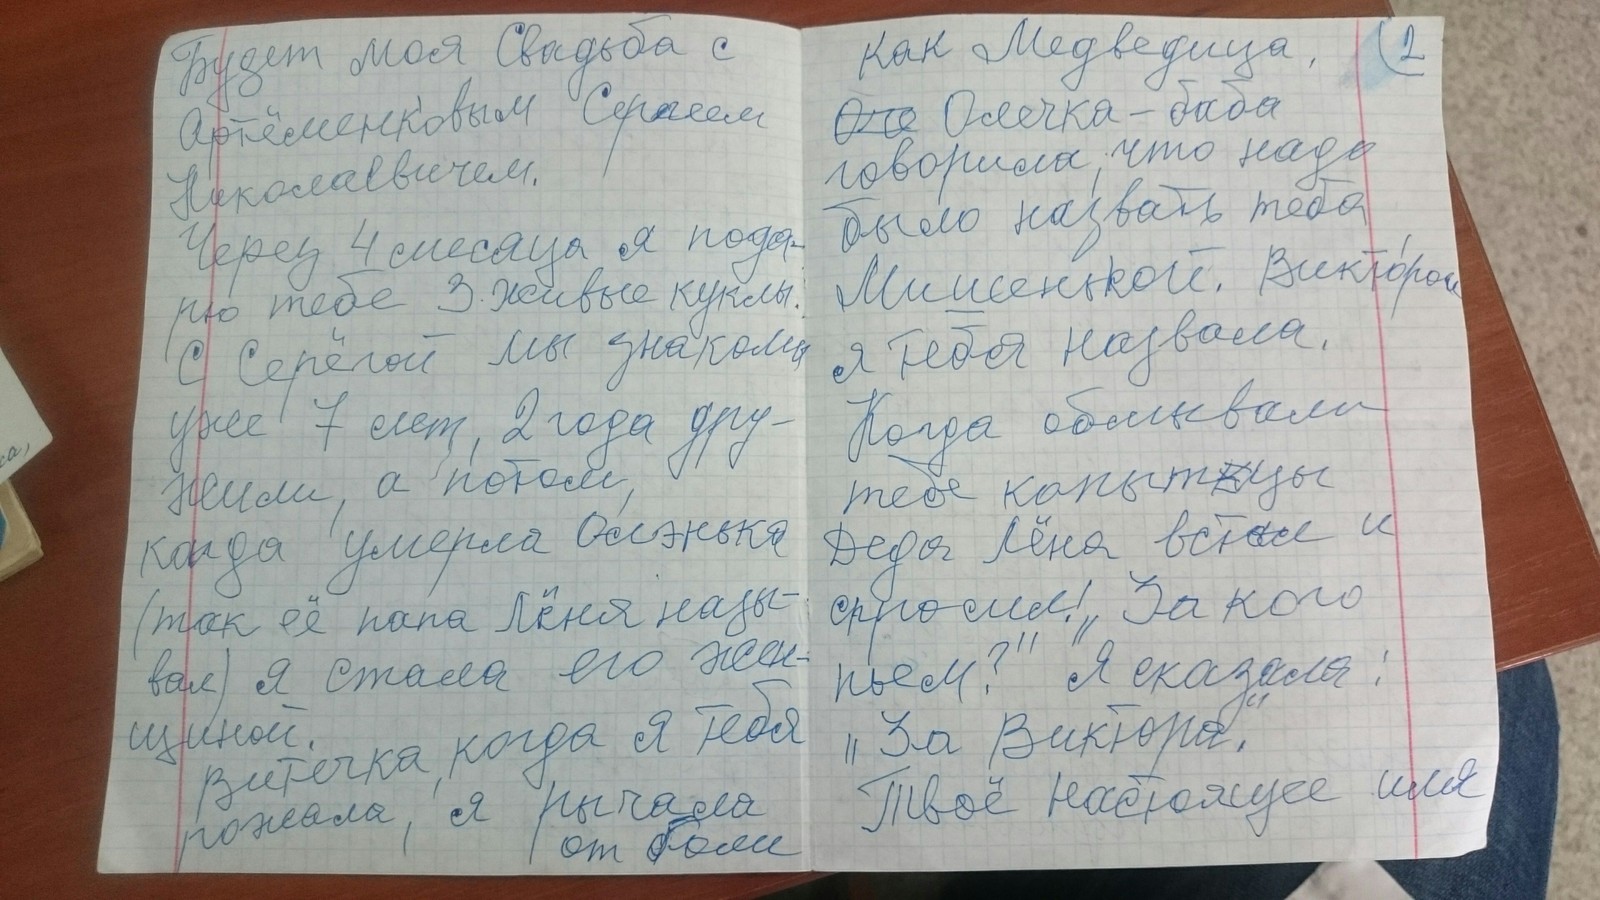 Будет моя Свадьба с
Артёменковым Сергеем
Николаевичем.
Через 4 месяца я пода-
рю тебе 3 живые куклы!
С Серёгой мы знакомы
уже 7 лет, 2 года дру-
жили, а потом,
когда умерла Олэнька
(так её папа Лёня назы-
вал) я стала его жен-
щиной.
Витечка, когда я тебя
рожала, я рычала
от боли
как Медведица. (2
Олечка - баба
говорила, что надо
было назвать тебя
Мишенькой. Виктором
я тебя назвала.
Когда обмывали
тебе копытцы
Деда Лёна встал и
спросил! „За кого
пьем?" Я сказала:
„За Виктора".
Твоё настоящее имя